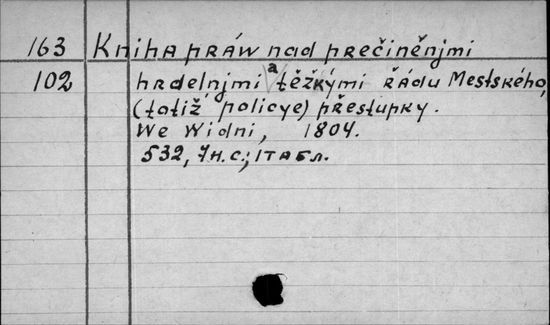 163 Kniha práw nad prečiněnjmi
102 hrdelnjmi a těžkými řádu Mestského,
(totiž policye) přestupky.
We Widni, 1804.
532, 7 н.с.; 1 табл.